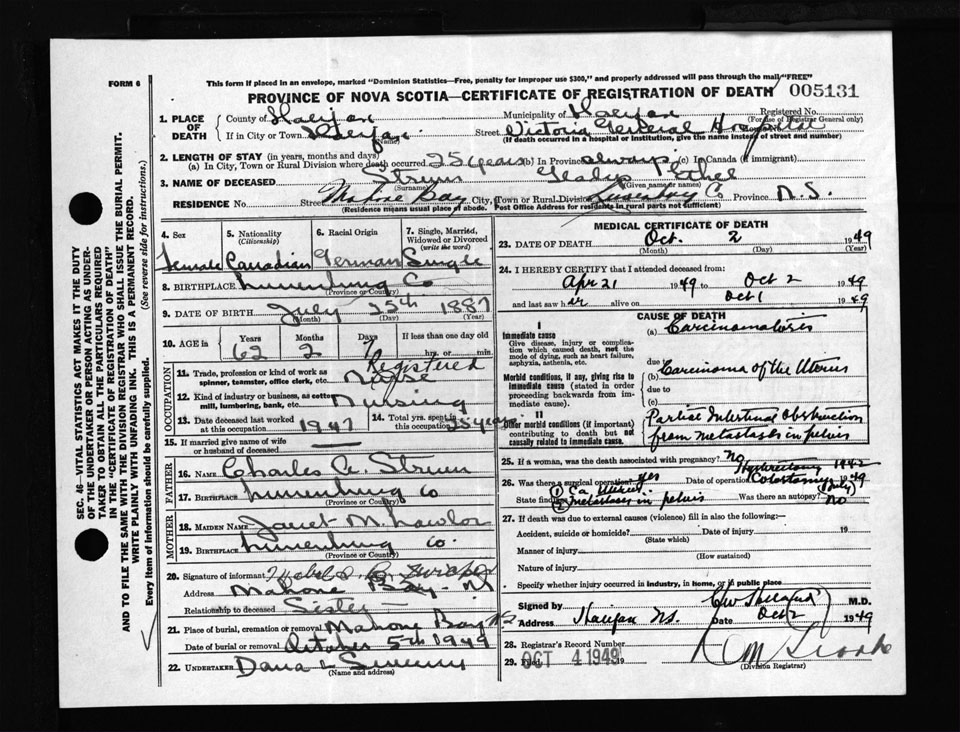 FORM 6
This form if placed in an envelope, marked "Dominion Statistics—Free, penalty for improper use $300," and properly addressed will pass through the mail "FREE"
PROVINCE OF NOVA SCOTIA—CERTIFICATE OF REGISTRATION OF DEATH 005131
1. PLACE OF DEATH County of Halifax Municipality of Halifax Registered No.
(For use of Registrar General only)
If in City or Town Halifax Street Victoria General Hospital
(Name) (If death occurred in a hospital or institution, give the name instead of street and number)
2. LENGTH OF STAY (in years, months and days)
(a) In City, Town or Rural Division where death occurred 25 years (b) In Province always (c) In Canada (if immigrant)
3. NAME OF DECEASED Strum Gladys Ethel
(Surname) (Given name or names)
RESIDENCE No. Street Mahone Bay City, Town or Rural Division Co Province N.S.
(Residence means usual place of abode. Post Office Address for residents in rural parts not sufficient)
4. Sex Female
5. Nationality (Citizenship) Canadian
6. Racial Origin German
7. Single, Married, Widowed or Divorced (write the word) Single
8. BIRTHPLACE Lunenburg Co
(Province or Country)
9. DATE OF BIRTH July 25th 1887
(Month) (Day) (Year)
10. AGE in Years 62 Months 2 Days If less than one day hrs. or min.
OCCUPATION
11. Trade, profession or kind of work as spinner, teamster, office clerk, etc. Registered Nurse
12. Kind of industry or business, as cotton mill, lumbering, bank, etc. Nursing
13. Date deceased last worked at this occupation 1947
14. Total yrs. spent in this occupation 25 years
15. If married give name of wife or husband of deceased —
FATHER
16. NAME Charles A. Strum
17. BIRTHPLACE Lunenburg Co
(Province or Country)
MOTHER
18. MAIDEN NAME Janet M. Lawlor
19. BIRTHPLACE Lunenburg Co.
(Province or Country)
20. Signature of informant
Address Mahone Bay. NS
Relationship to deceased Sister
21. Place of burial, cremation or removal Mahone Bay N.S
Date of burial or removal October 5th 1949
22. UNDERTAKER Dana L Sweeny
(Name and address)
MEDICAL CERTIFICATE OF DEATH
23. DATE OF DEATH Oct. 2 1949
(Month) (Day) (Year)
24. I HEREBY CERTIFY that I attended deceased from:
Apr 21 1949 to Oct 2 1949
and last saw her alive on Oct 1 1949
CAUSE OF DEATH
I
Immediate cause
Give disease, injury or complication which caused death, not the mode of dying, such as heart failure, asphyxia, asthenia, etc.
(a) Carcinomatosis
due to
Morbid conditions, if any, giving rise to immediate cause (stated in order proceeding backwards from immediate cause).
(b) Carcinoma of the Uterus
due to
(c)
II
Other morbid conditions (if important) contributing to death but not causally related to immediate cause.
Partial Intestinal Obstruction
from metastasis in pelvis
25. If a woman, was the death associated with pregnancy? No
26. Was there a surgical operation? yes Date of operation Hysterectomy 1942 Colostomy 1949 (July)
State findings (1) Ca Uterus (2) metastases in pelvis Was there an autopsy? No
27. If death was due to external causes (violence) fill in also the following:
Accident, suicide or homicide? Date of injury 19
(State which)
Manner of injury
(How sustained)
Nature of injury
Specify whether injury occurred in industry, in home, or in public place
Signed by M.D.
Address Halifax NS. Date Oct 2 1949
28. Registrar's Record Number
29. Filed OCT 4 1949 19
(Division Registrar)
SEC. 46—VITAL STATISTICS ACT MAKES IT THE DUTY
OF THE UNDERTAKER OR PERSON ACTING AS UNDERTAKER TO OBTAIN ALL THE PARTICULARS REQUIRED
IN THE "CERTIFICATE OF REGISTRATION OF DEATH"
AND TO FILE THE SAME WITH THE DIVISION REGISTRAR WHO SHALL ISSUE THE BURIAL PERMIT.
WRITE PLAINLY WITH UNFADING INK. THIS IS A PERMANENT RECORD.
Every item of information should be carefully supplied. (See reverse side for instructions.)